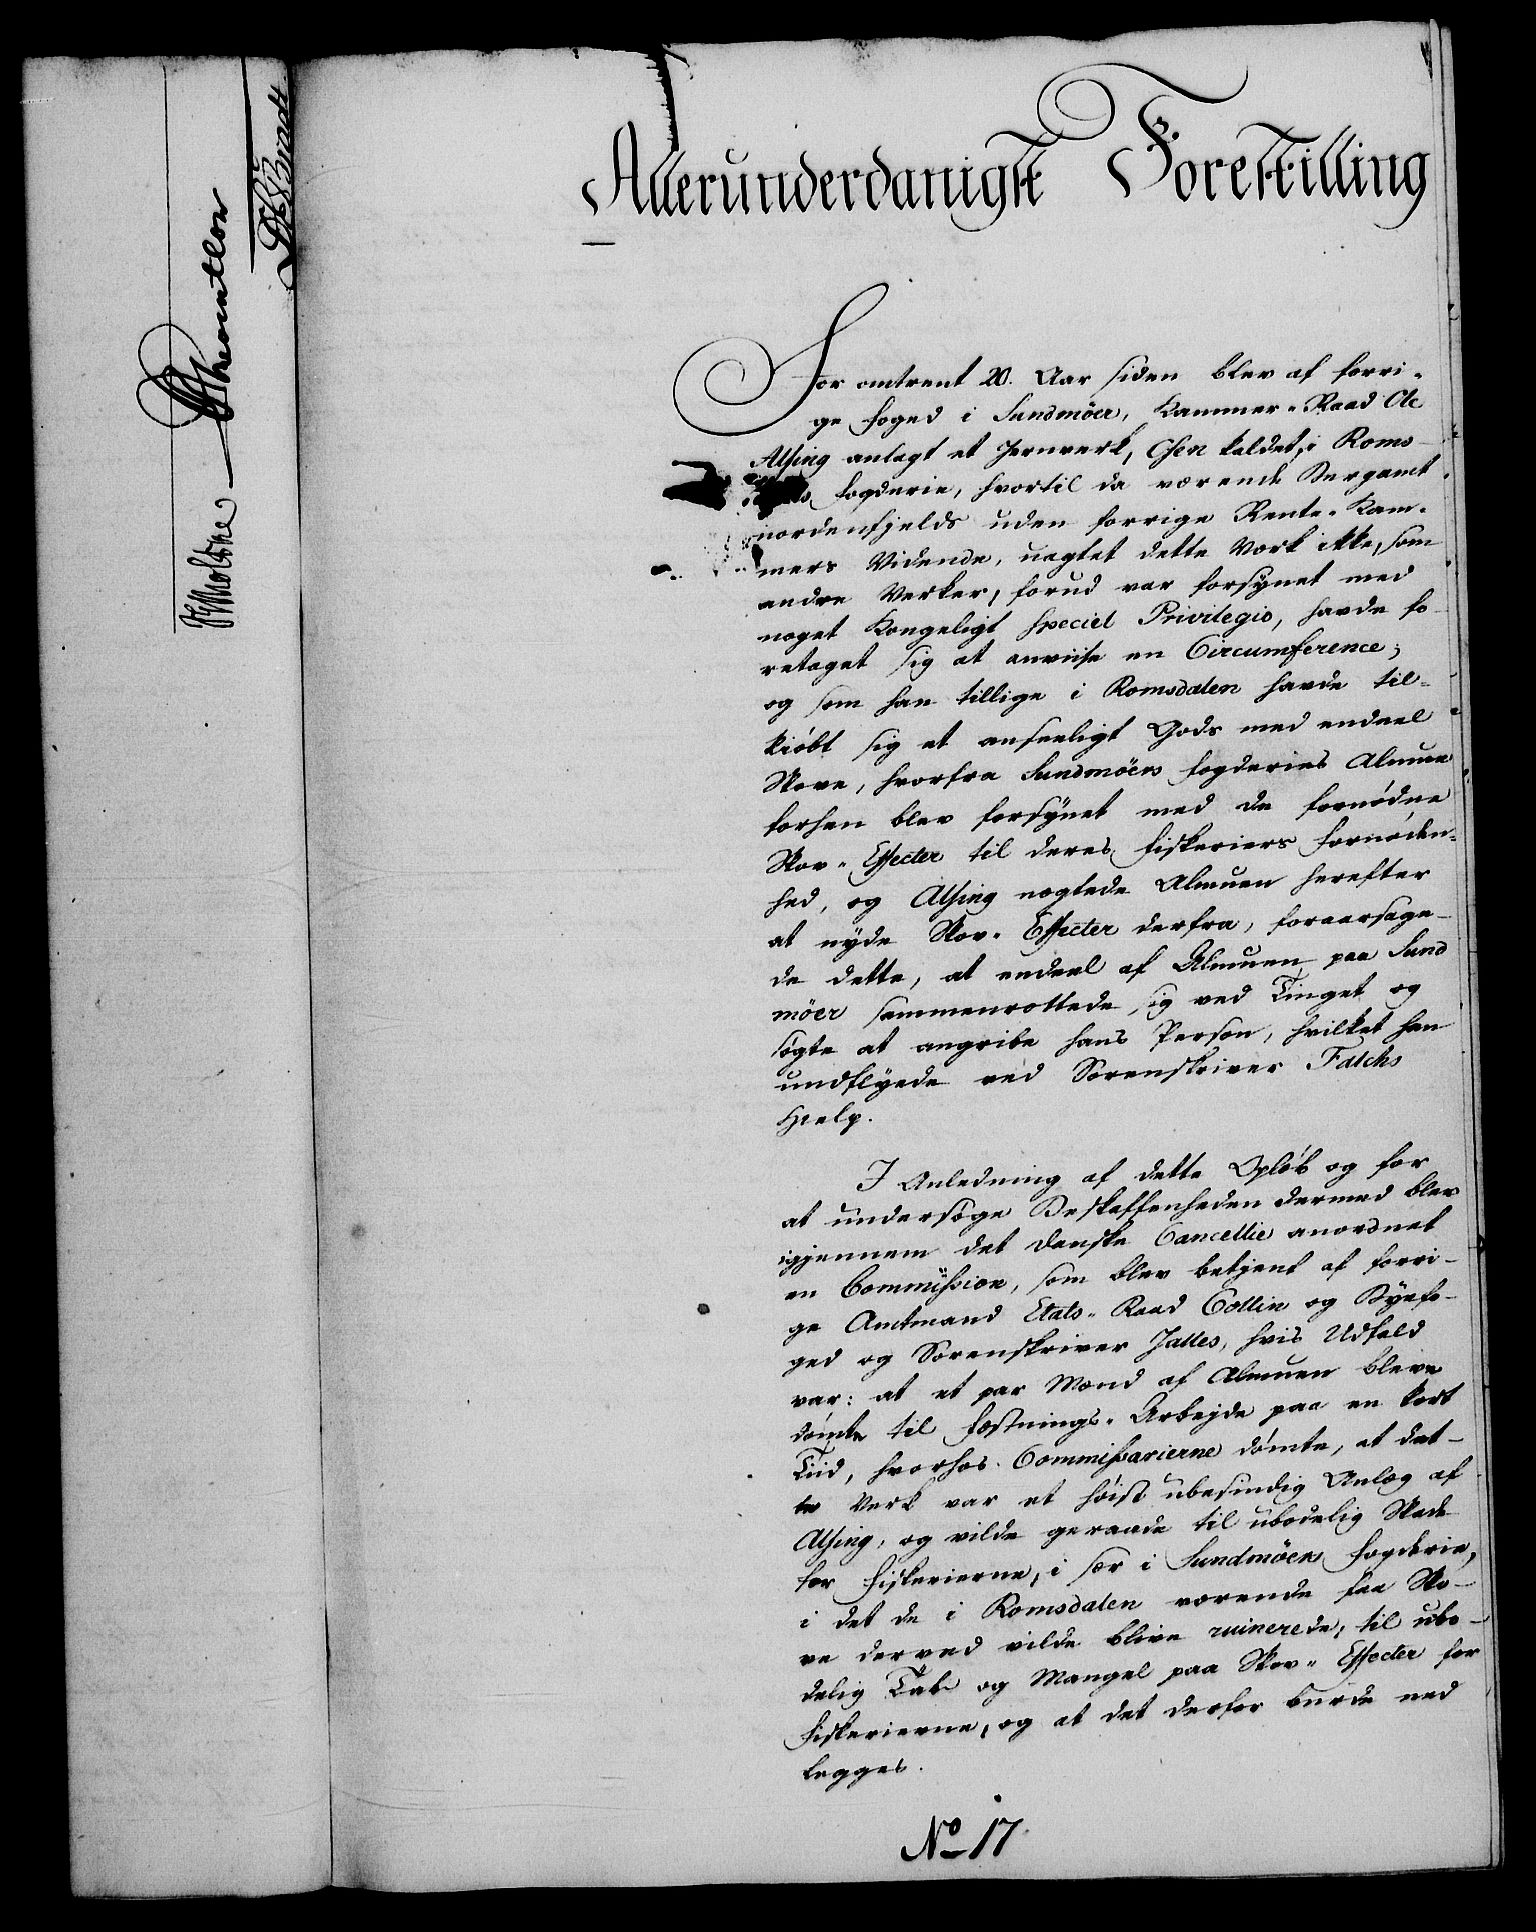 Allerunderdanigst Forestilling
For omtrent 20. Aar siden blev af forri-
ge Foged i Sundmöer, Kammer-Raad Ole
Alsing anlagt et Jernverk, Osen kaldet, i Roms-
dals Fogderie, hvortil da værende Bergamt
nordenfjelds uden forrige Rente-Kam-
mers Vidende, uagtet dette Verk ikke, som
andre Verker, forud var forsynet med
noget Kongeligt speciel Privilegio, havde fo-
retaget sig at anviise en Circumference;
og som han tillige i Romsdalen havde til-
kiöbt sig et anseeligt Gods med endeel
Skove, hvorfra Sundmöers Fogderies Almue
forhen blev forsÿnet med de fornödne
Skov-Effecter til deres Fiskeriers Fornöden-
hed, og Alsing nægtede Almuen herefter
at nyde Skov-Effecter derfra, foraarsage-
de dette, at endeel af Almuen paa Sund
möer sammenrottede sig ved Tinget og
sögte at angribe hans Person, hvilket han
undflyede ved Sorenskriver Falchs
Hielp.
I Anledning af dette Oplöb og for
at undersöge Beskaffenheden dermed blev
igjennem det danske Cancellie anordnet
en Commission, som blev betjent af forri-
ge Amtmand Etats-Raad Collin og Byefo-
ged og Sorenskriver Jalles, hvis Udfald
var: at et par Mænd af Almuen bleve
dömte til Fæstnings-Arbejde paa en kort
Tiid, hvorhos Commissarierne dömte, at det-
te Verk var et höist ubesindig Anlæg af
Alsing, og vilde geraade til ubodelig Skade
for Fiskerierne, i sær i Sundmöers Fogderie,
i det de i Romsdalen værende faa Sko-
ve derved vilde blive ruinerede, til ubo-
delig Tab og Mangel paa Skov-Effecter for
Fiskerierne, og at det derfor burde ned
legges.
No 17